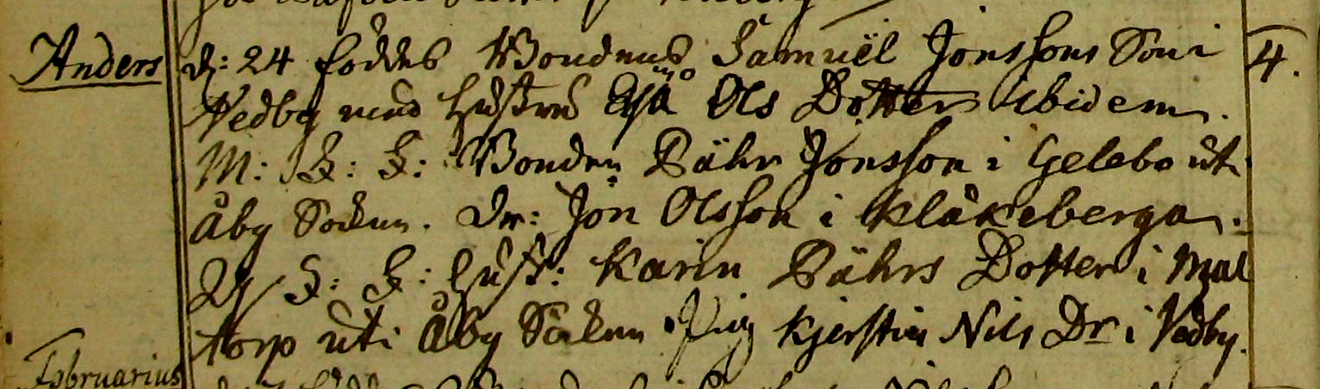 Anders d: 24 föddes Bondens Samuel Jonssons Son i 4.
Vedby med hustrun Ols Dotter ibidem.
M: S: S: Bonden Pähr Jonsson i Gelebo ut
Åby Sochen. Dr: Jon Olsson i Klåkeberga.
Q S: S: hust: Karin Pährs Dotter i Mal
torp uti Åby Sochen. Pig Kjerstin Nils Dr i Vedby.
Februarius